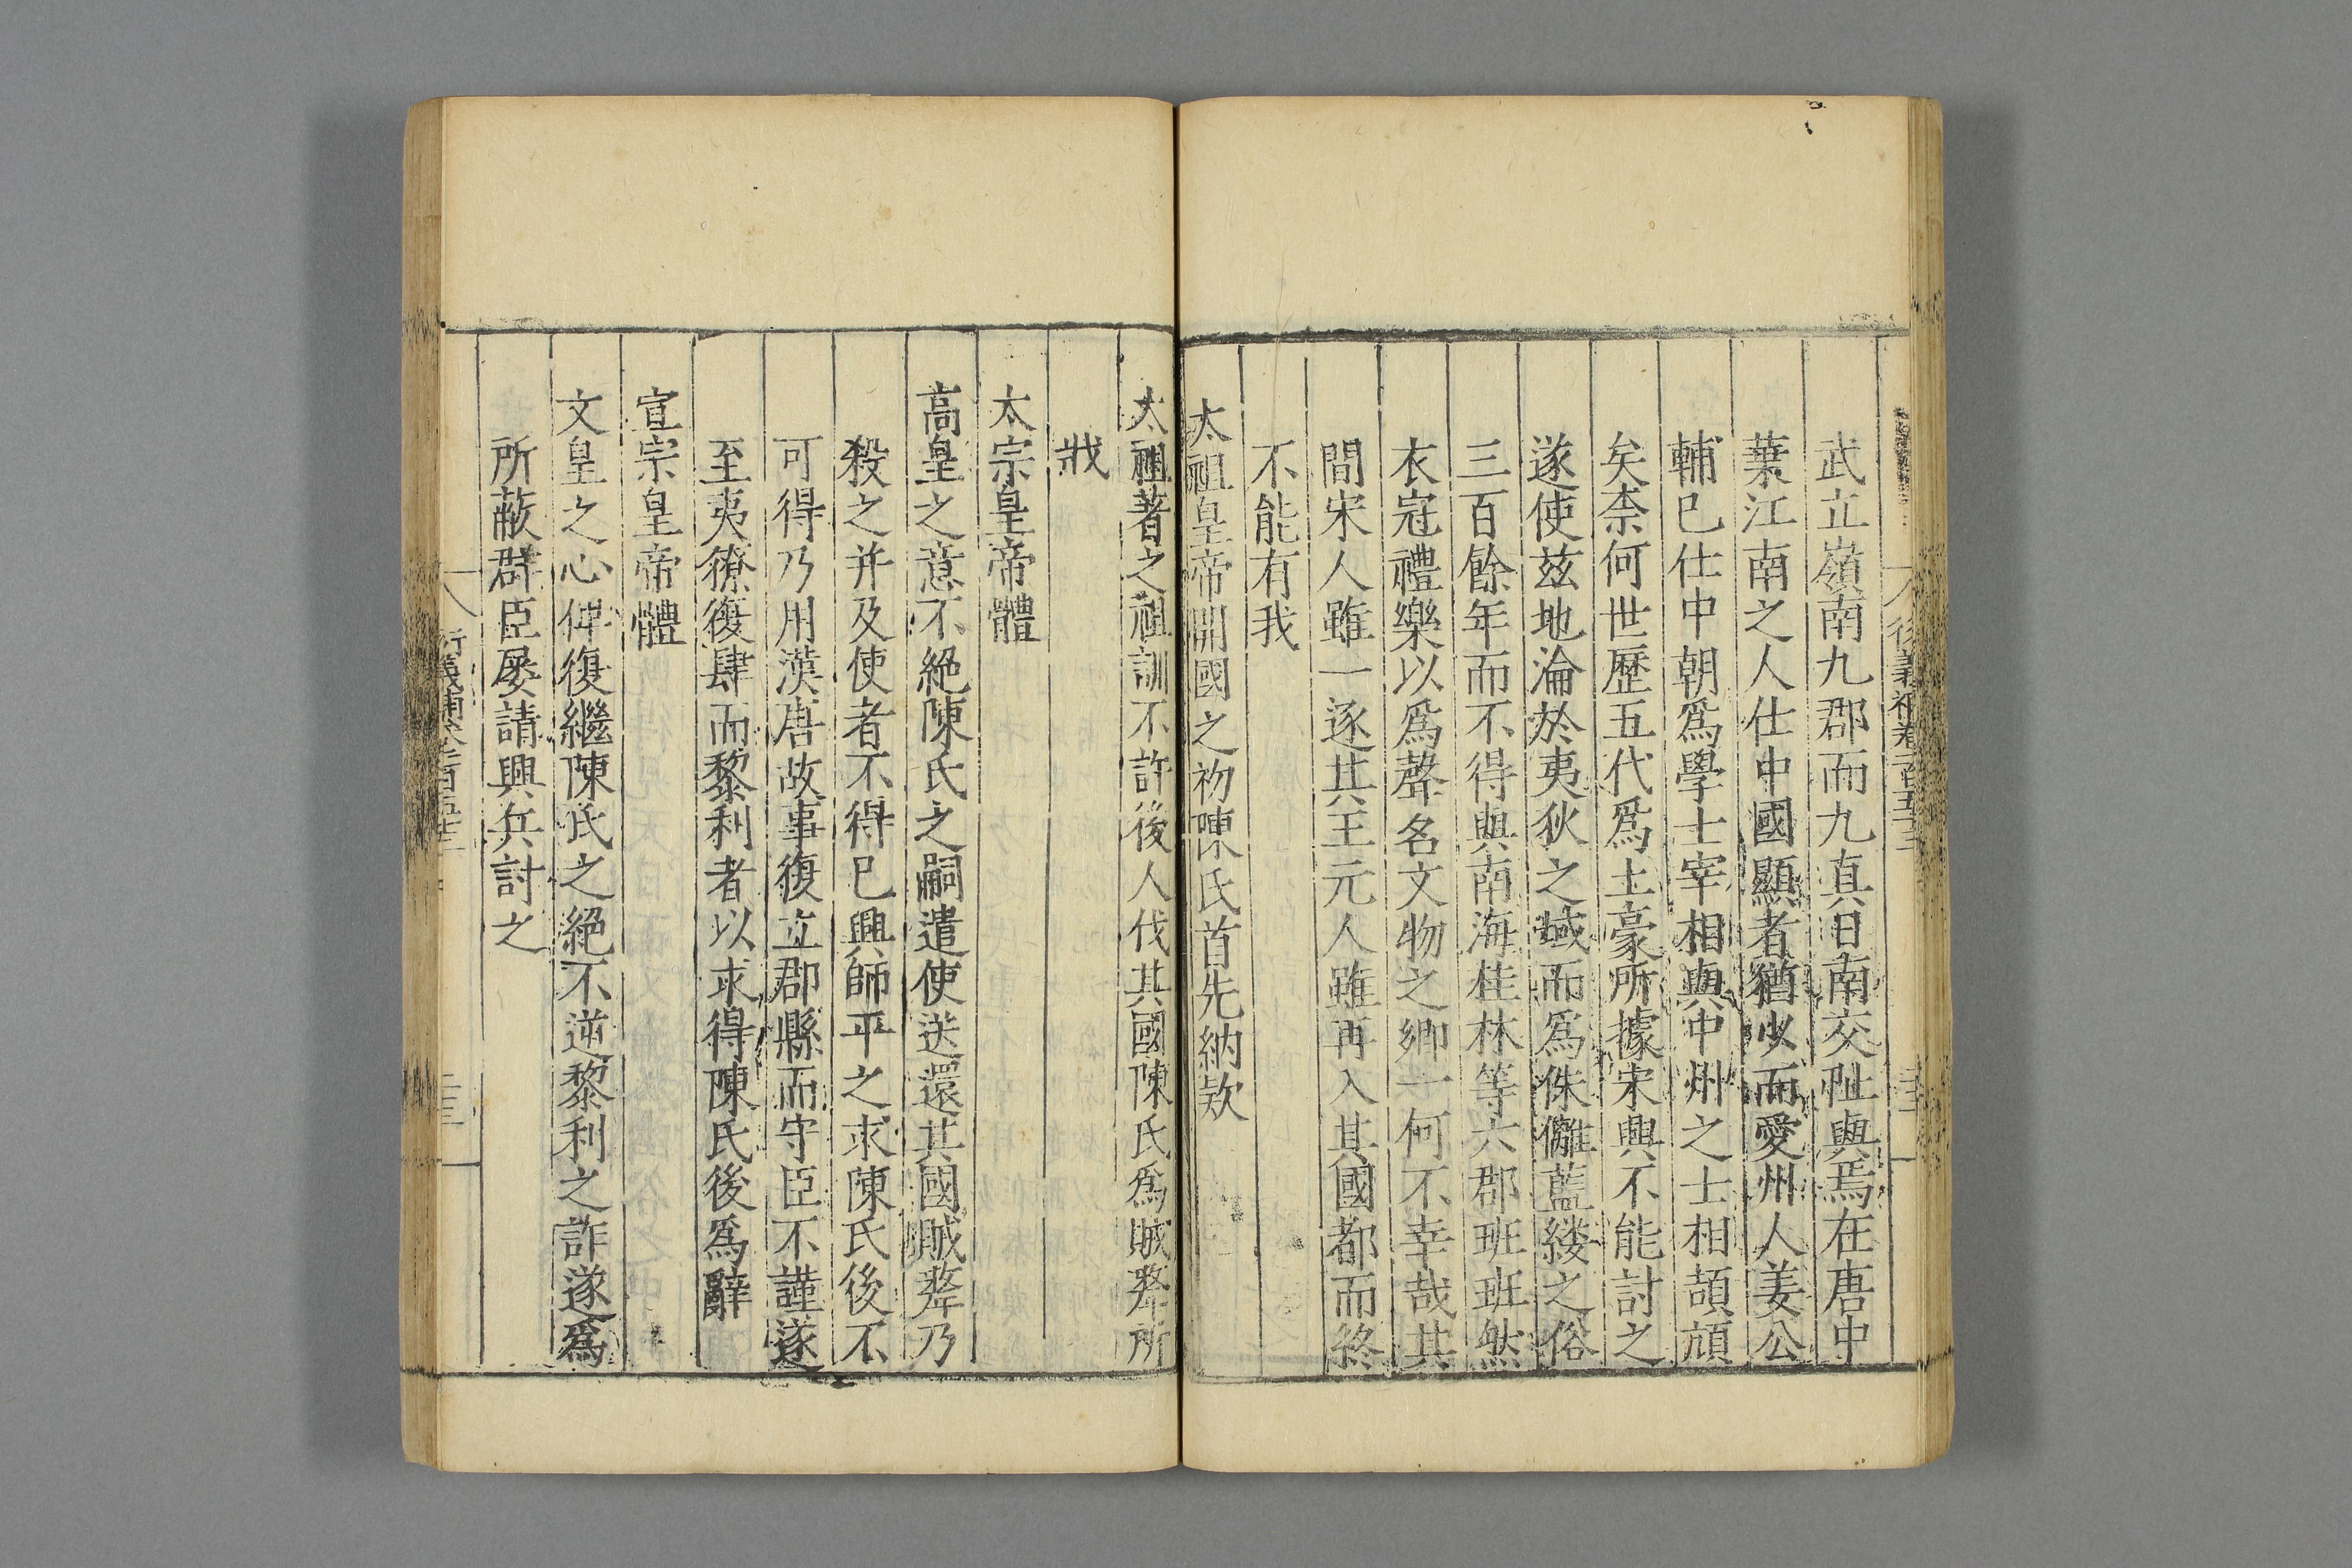 武立嶺南九郡而九真日南交趾與焉在唐中
葉江南之人仕中國顯者猶少而愛州人姜公
輔已仕中朝爲學士宰相與中州之士相頡頏
矣柰何世歷五代爲土豪所據宋興不能討之
遂使兹地淪於夷狄之域而爲侏㒧藍縷之俗
三百餘年而不得與南海桂林等六郡班班然
衣冠禮樂以爲聲名文物之郷一何不幸哉其
間宋人雖一逐其王元人雖再入其國都而終
不能有我
太祖皇帝開國之初陳氏首先納欵
太祖著之祖訓不許後人伐其國陳氏爲賊黎所
戕
太宗皇帝體
高皇之意不絕陳氏之嗣遣使送還其國賊黎乃
殺之并及使者不得已興師平之求陳氏後不
可得乃用漢唐故事復立郡縣而守臣不謹遂
至夷獠復肆而黎利者以求得陳氏後爲辭
宣宗皇帝體
文皇之心俾復繼陳氏之絕不逆黎利之詐遂爲
所蔽群臣屡請興兵討之